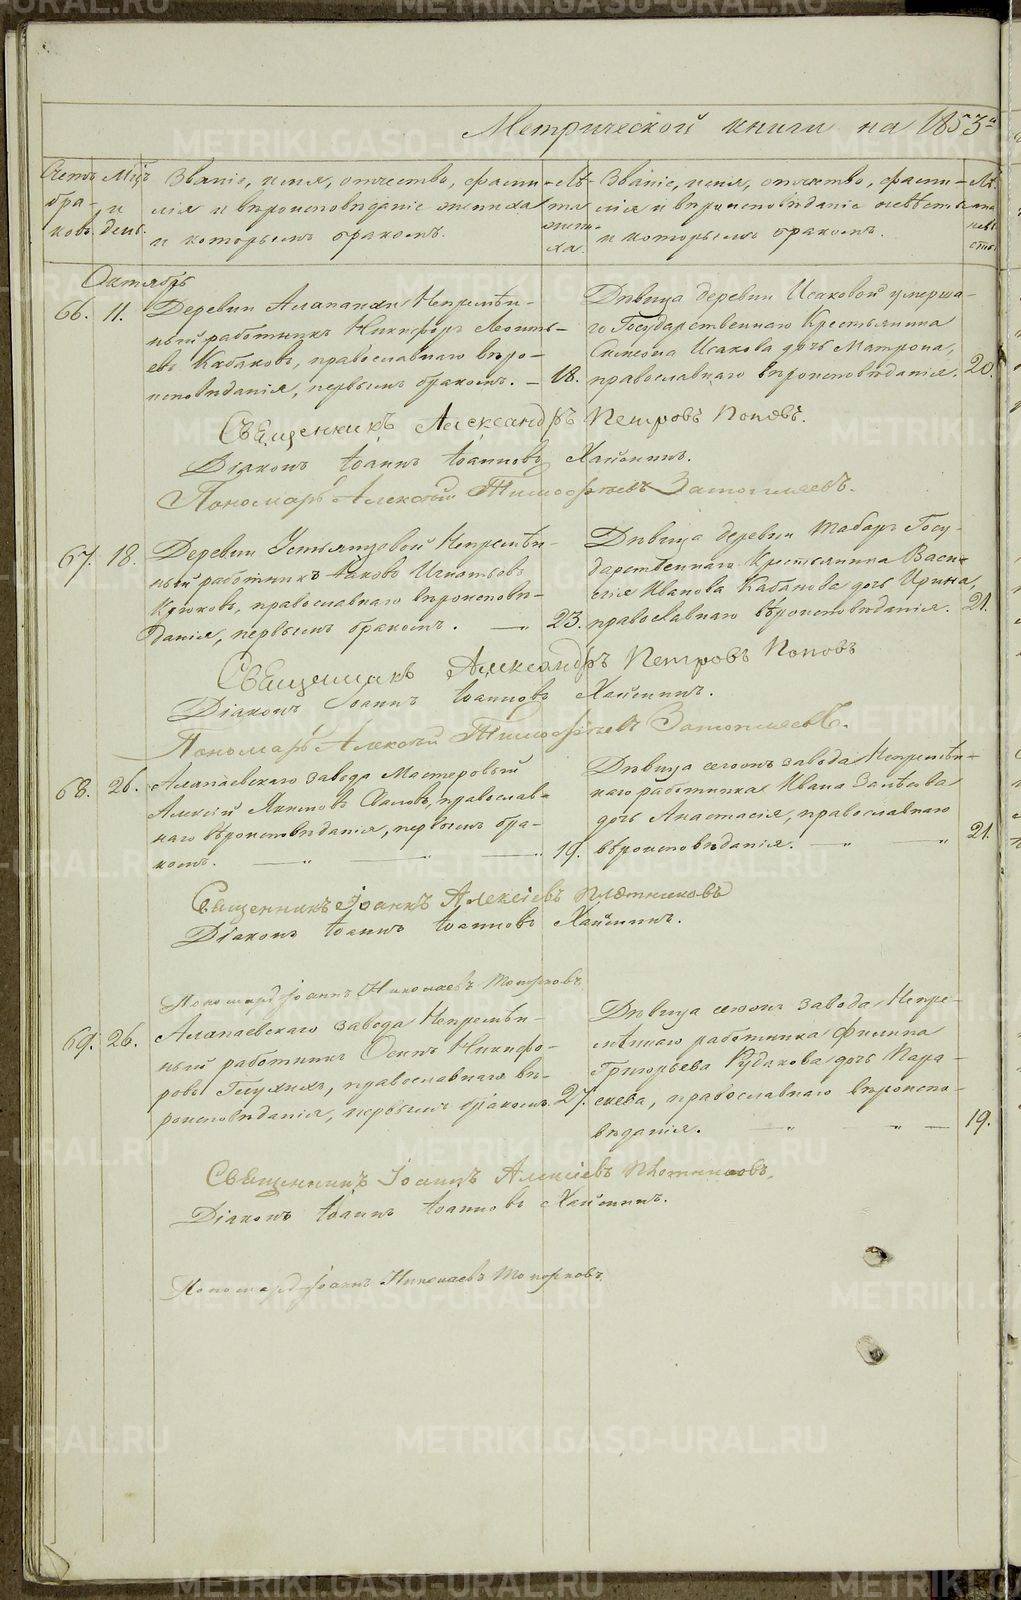 Метрической книги на 1853 й
Счетъ бра- ковъ.
Мѣц. и день.
Званіе, имя, отчество, фами-
лія и вѣроисповѣданіе жениха
и которымъ бракомъ.
Лѣ-
та
жени-
ха.
Званіе, имя, отчество, фами-
лія и вѣроисповѣданіе невѣсты
и которымъ бракомъ.
Лѣ-
та
невѣ-
сты.
Октябрь
66. 11. Деревни Алапаихи Непремѣн-
ный работникъ Никифоръ Леонть-
евъ Кабаковъ, православнаго вѣро-
исповѣданія, первымъ бракомъ. — 18.
Дѣвица деревни Исаковой умерша-
го Государственнаго Крестьянина
Симеона Исакова дочь Матрона,
православнаго вѣроисповѣданія. 20.
Священникъ Александръ Петровъ Поповъ.
Діаконъ Іоаннъ Іоанновъ Хайминъ.
Пономарь Алексѣй Тимофѣевъ Затопляевъ.
67. 18. Деревни Устьянцовой Непремѣн-
ный работникъ Яковъ Игнатьевъ
Крюковъ, православнаго вѣроисповѣ-
данія, первымъ бракомъ. — „ 23.
Дѣвица деревни Табаръ Госу-
дарственнаго Крестьянина Васи-
лія Иванова Кабанова дочь Ирина,
православнаго вѣроисповѣданія. 21.
Священникъ Александръ Петровъ Поповъ
Діаконъ Іоаннъ Іоанновъ Хайминъ.
Пономарь Алексѣй Тимофѣевъ Затопляевъ.
68. 26. Алапаевскаго завода Мастеровый
Алексѣй Якимовъ, православ-
наго вѣроисповѣданія, первымъ бра-
комъ. — „ „ — „ 19.
Дѣвица сегожъ завода Непремѣн-
наго работника Ивана
дочь Анастасія, православнаго
вѣроисповѣданія. — „ „ 21.
Священникъ Іоаннъ Алексіевъ Плотниковъ
Діаконъ Іоаннъ Іоанновъ Хайминъ.
Пономарь Іоаннъ Николаевъ Топорковъ
69. 26. Алапаевскаго завода Непремѣн-
ный работникъ Осипъ Никифо-
ровъ Глухихъ, православнаго вѣ-
роисповѣданія, первымъ бракомъ. 27.
Дѣвица сегожъ завода Непре-
мѣннаго работника Филиппа
Григорьева Рудакова дочь Пара-
скева, православнаго вѣроиспо-
вѣданія. — „ „ — 19.
Священникъ Іоаннъ Алексіевъ Плотниковъ.
Діаконъ Іоаннъ Іоанновъ Хайминъ.
Пономарь Іоаннъ Николаевъ Топорковъ.
METRIKI.GASO-URAL.RU